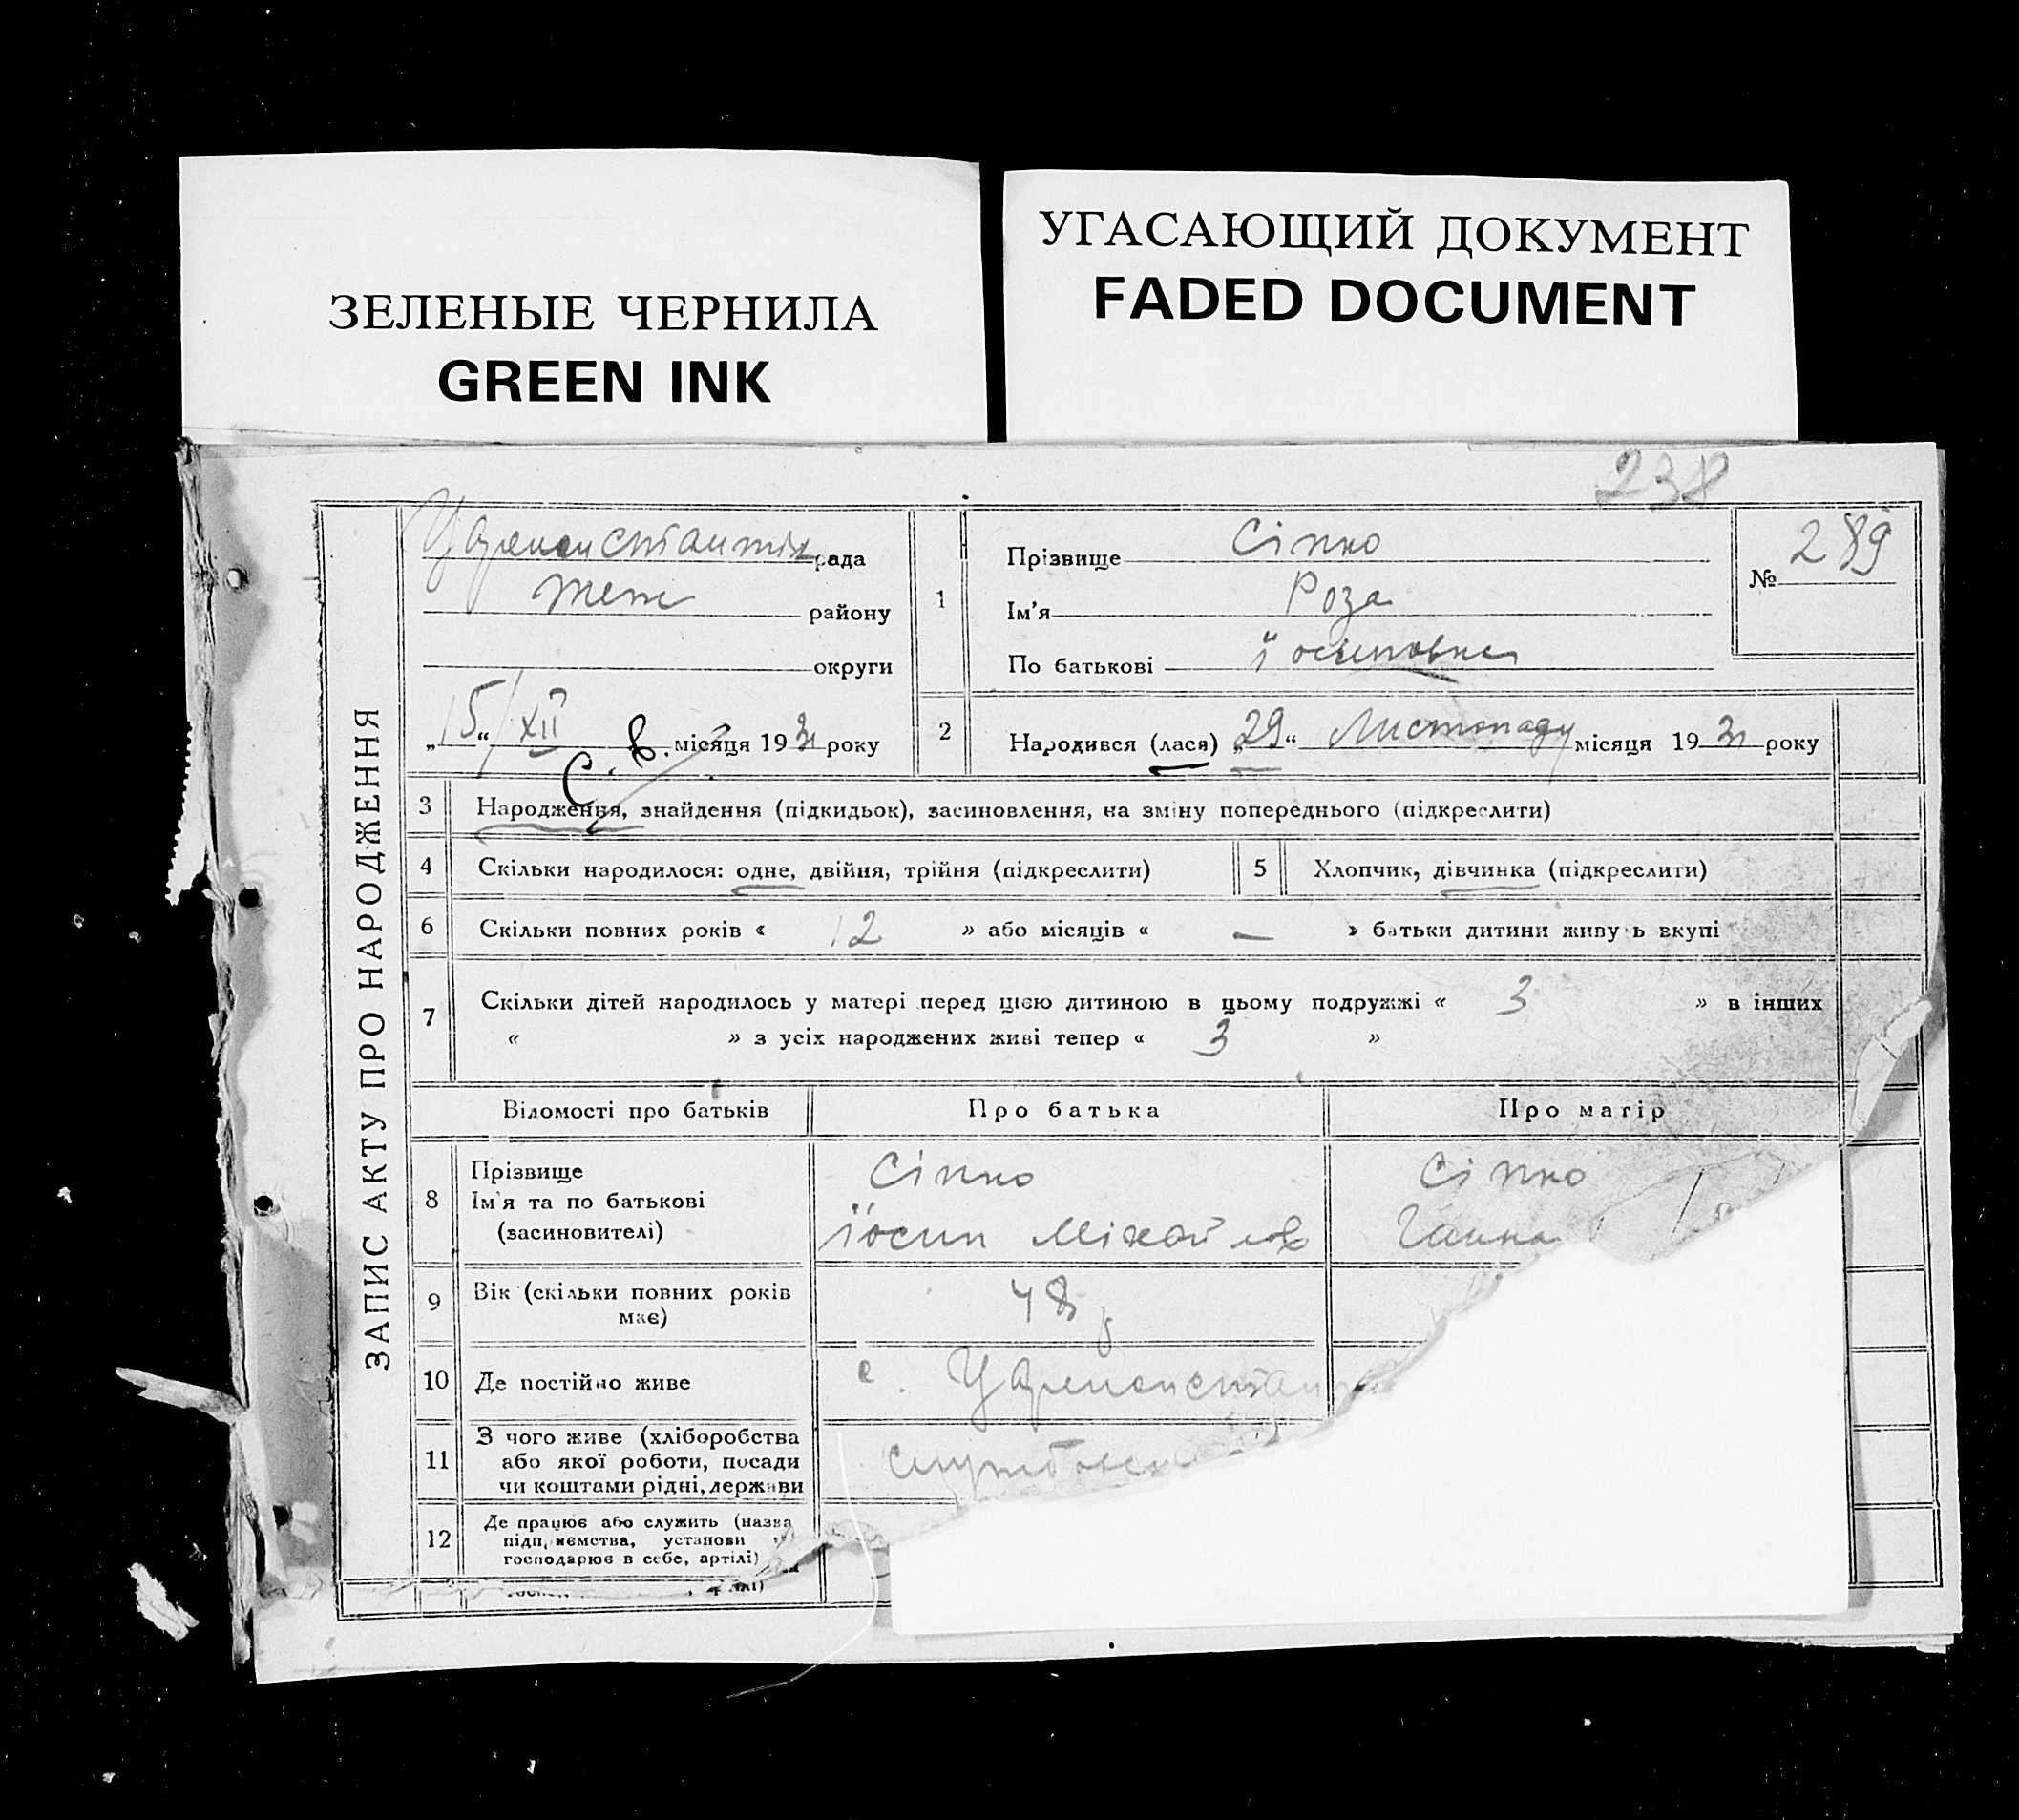 ЗЕЛЕНЫЕ ЧЕРНИЛА
GREEN INK
УГАСАЮЩИЙ ДОКУМЕНТ
FADED DOCUMENT
238
ЗАПИС АКТУ ПРО НАРОДЖЕННЯ
рада
району
округи
„15“/XII місяця 1931 року
С. в.
1
Прізвище Сіпко
Ім'я Роза
По батькові Йосиповна
№ 289
2 Народився (лася) „29“ Листопаду місяця 1931 року
3 Народження, знайдення (підкидьок), засиновлення, на зміну попереднього (підкреслити)
4 Скільки народилося: одне, двійня, трійня (підкреслити)
5 Хлопчик, дівчинка (підкреслити)
6 Скільки повних років « 12 » або місяців « — » батьки дитини живуть вкупі
7 Скільки дітей народилось у матері перед цією дитиною в цьому подружжі « 3 » в інших
« » з усіх народжених живі тепер « 3 »
Відомості про батьків Про батька Про матір
8 Прізвище
Ім'я та по батькові
(засиновителі)
Сіпко
Йосип Міхайлов
Сіпко
Ганна
9 Вік (скільки повних років
має)
48
10 Де постійно живе
с.
11 З чого живе (хліборобства
або якої роботи, посади
чи коштами рідні, держави
12 Де працює або служить (назва
підприємства, установи
господарює в себе, артілі)